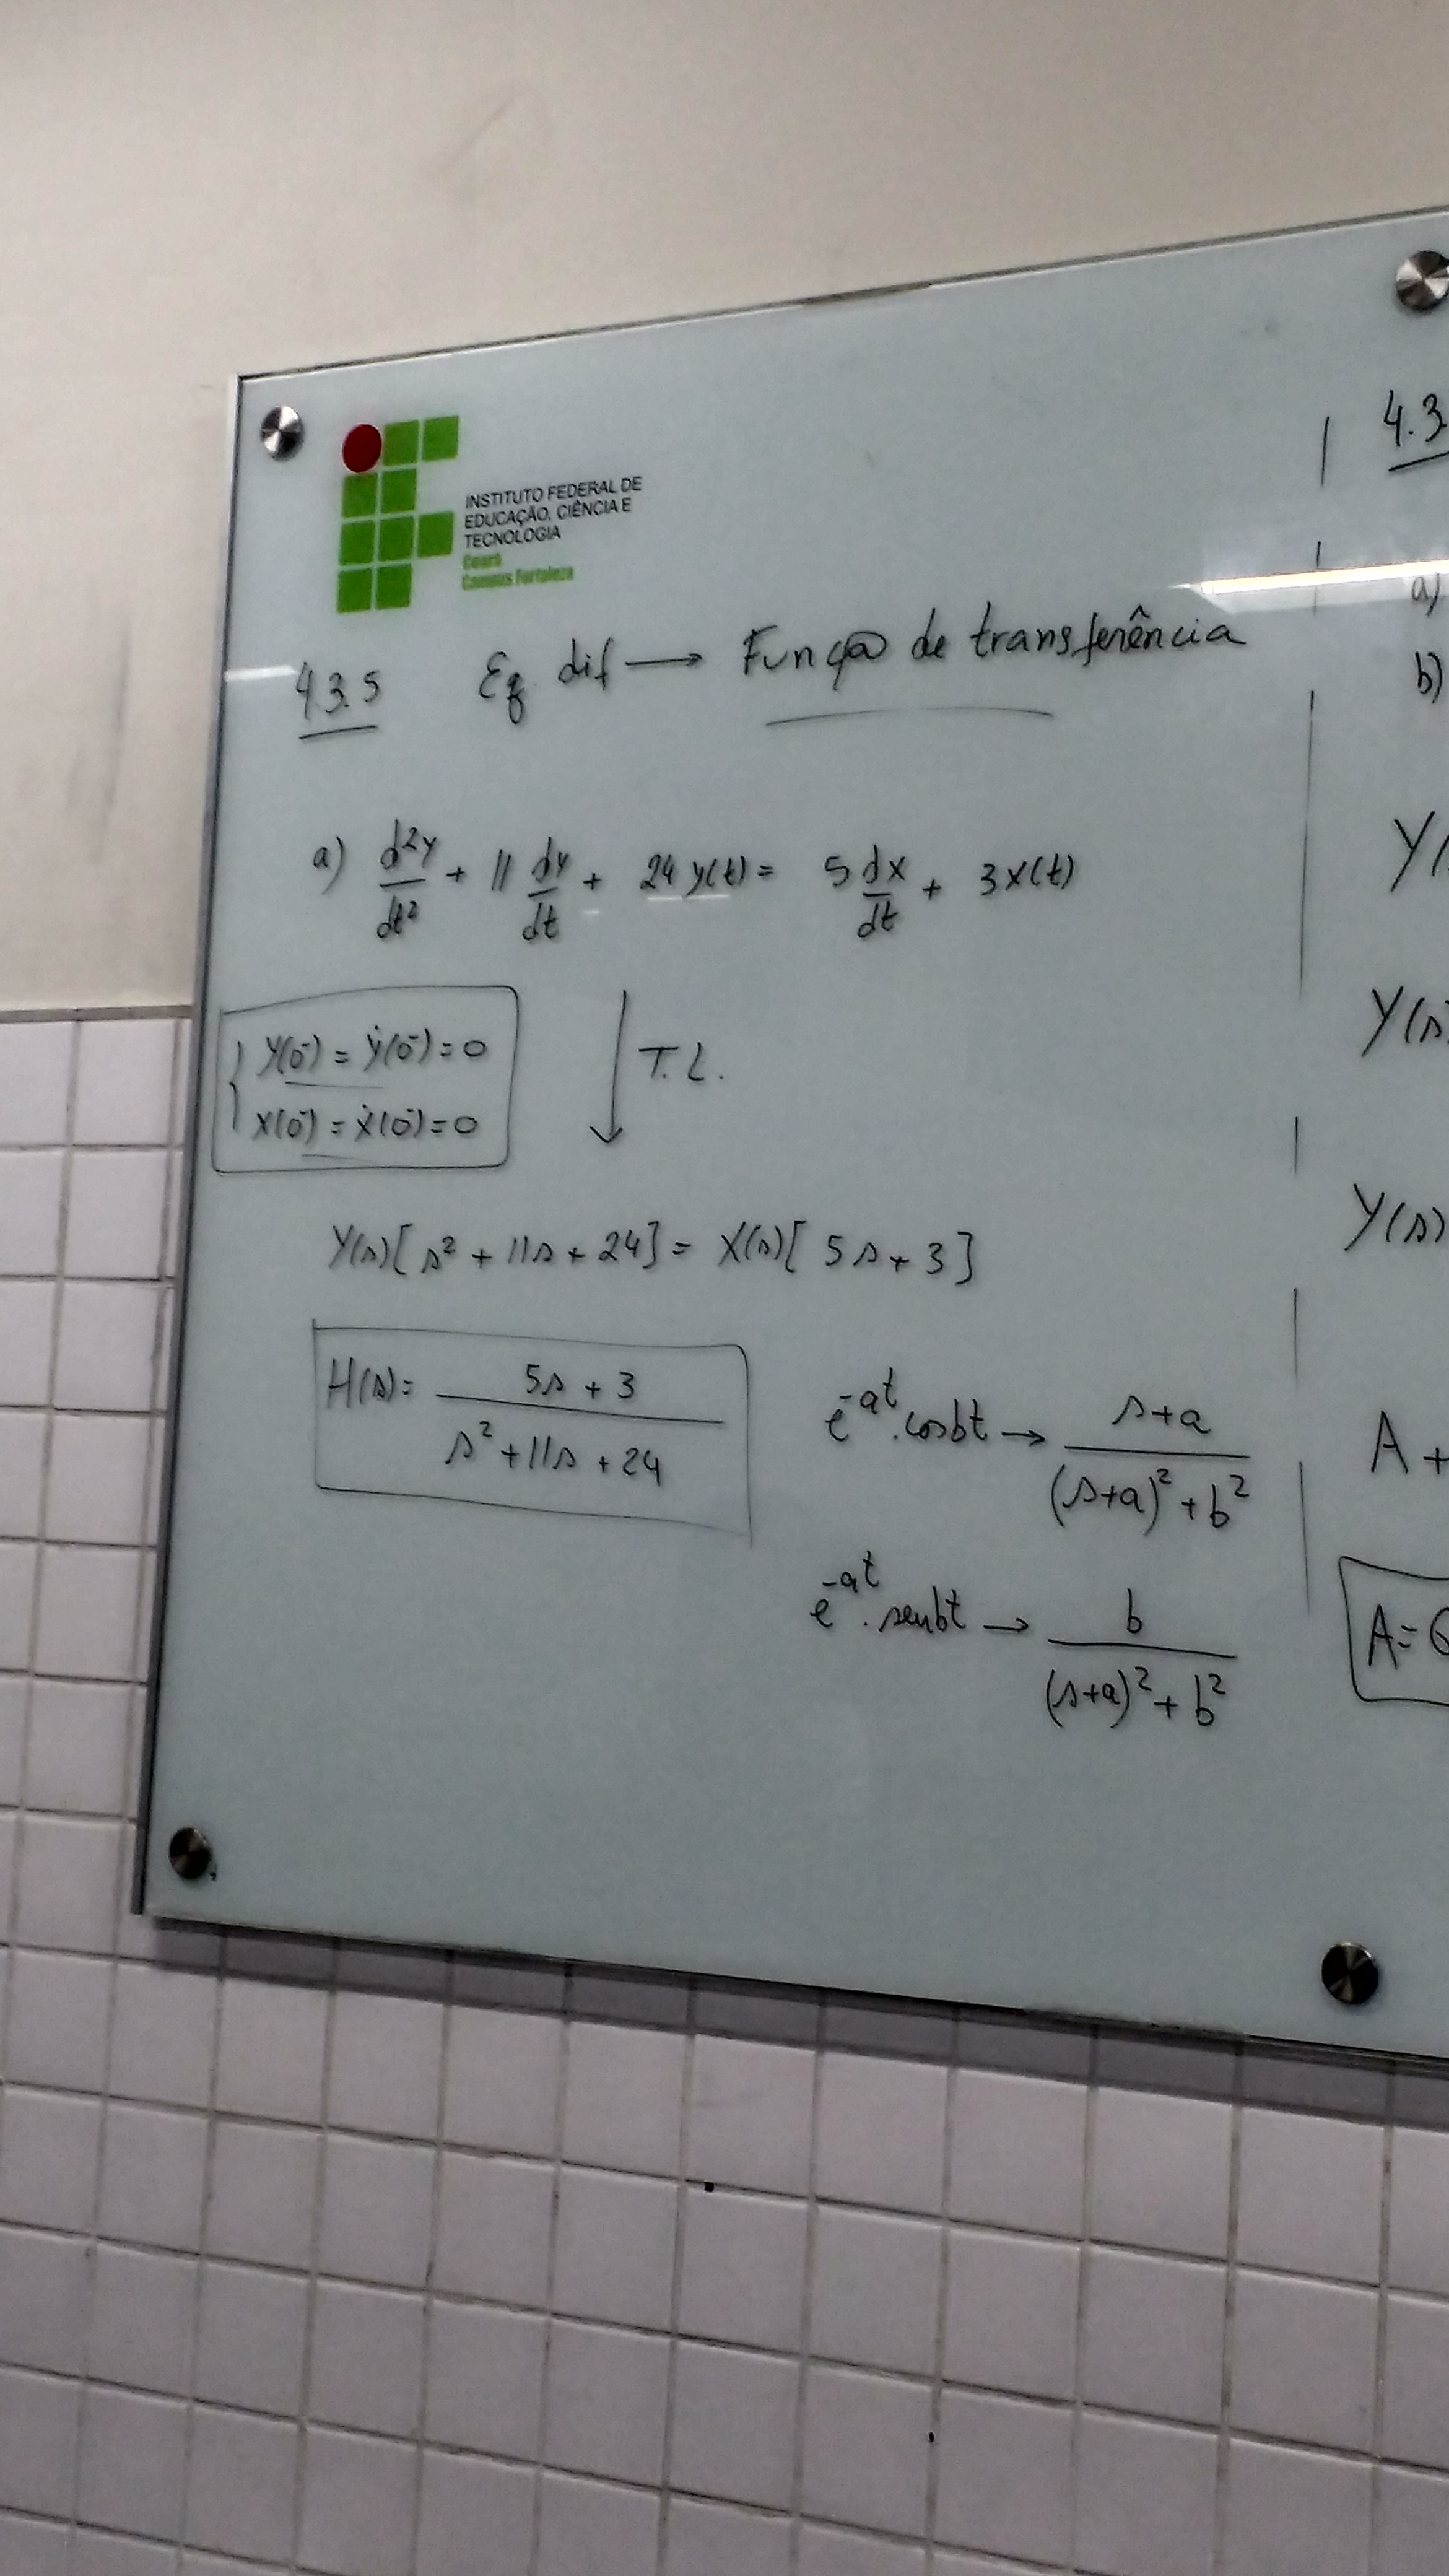 INSTITUTO FEDERAL DE
EDUCAÇÃO, CIÊNCIA E
TECNOLOGIA
Ceará
Campus Fortaleza
4.3.5 Eq dif → Função de transferência
a) d²y/dt² + 11 dy/dt + 24 y(t) = 5 dx/dt + 3x(t)
y(0⁻) = ẏ(0⁻) = 0
x(0⁻) = ẋ(0⁻) = 0
T.L.
Y(s)[s² + 11s + 24] = X(s)[5s + 3]
H(s) = (5s + 3)/(s² + 11s + 24)
e^-at . cosbt → (s+a)/((s+a)² + b²)
e^-at . senbt → b/((s+a)² + b²)
4.3
a)
b)
Y(
Y(s)
Y(s)
A +
A =